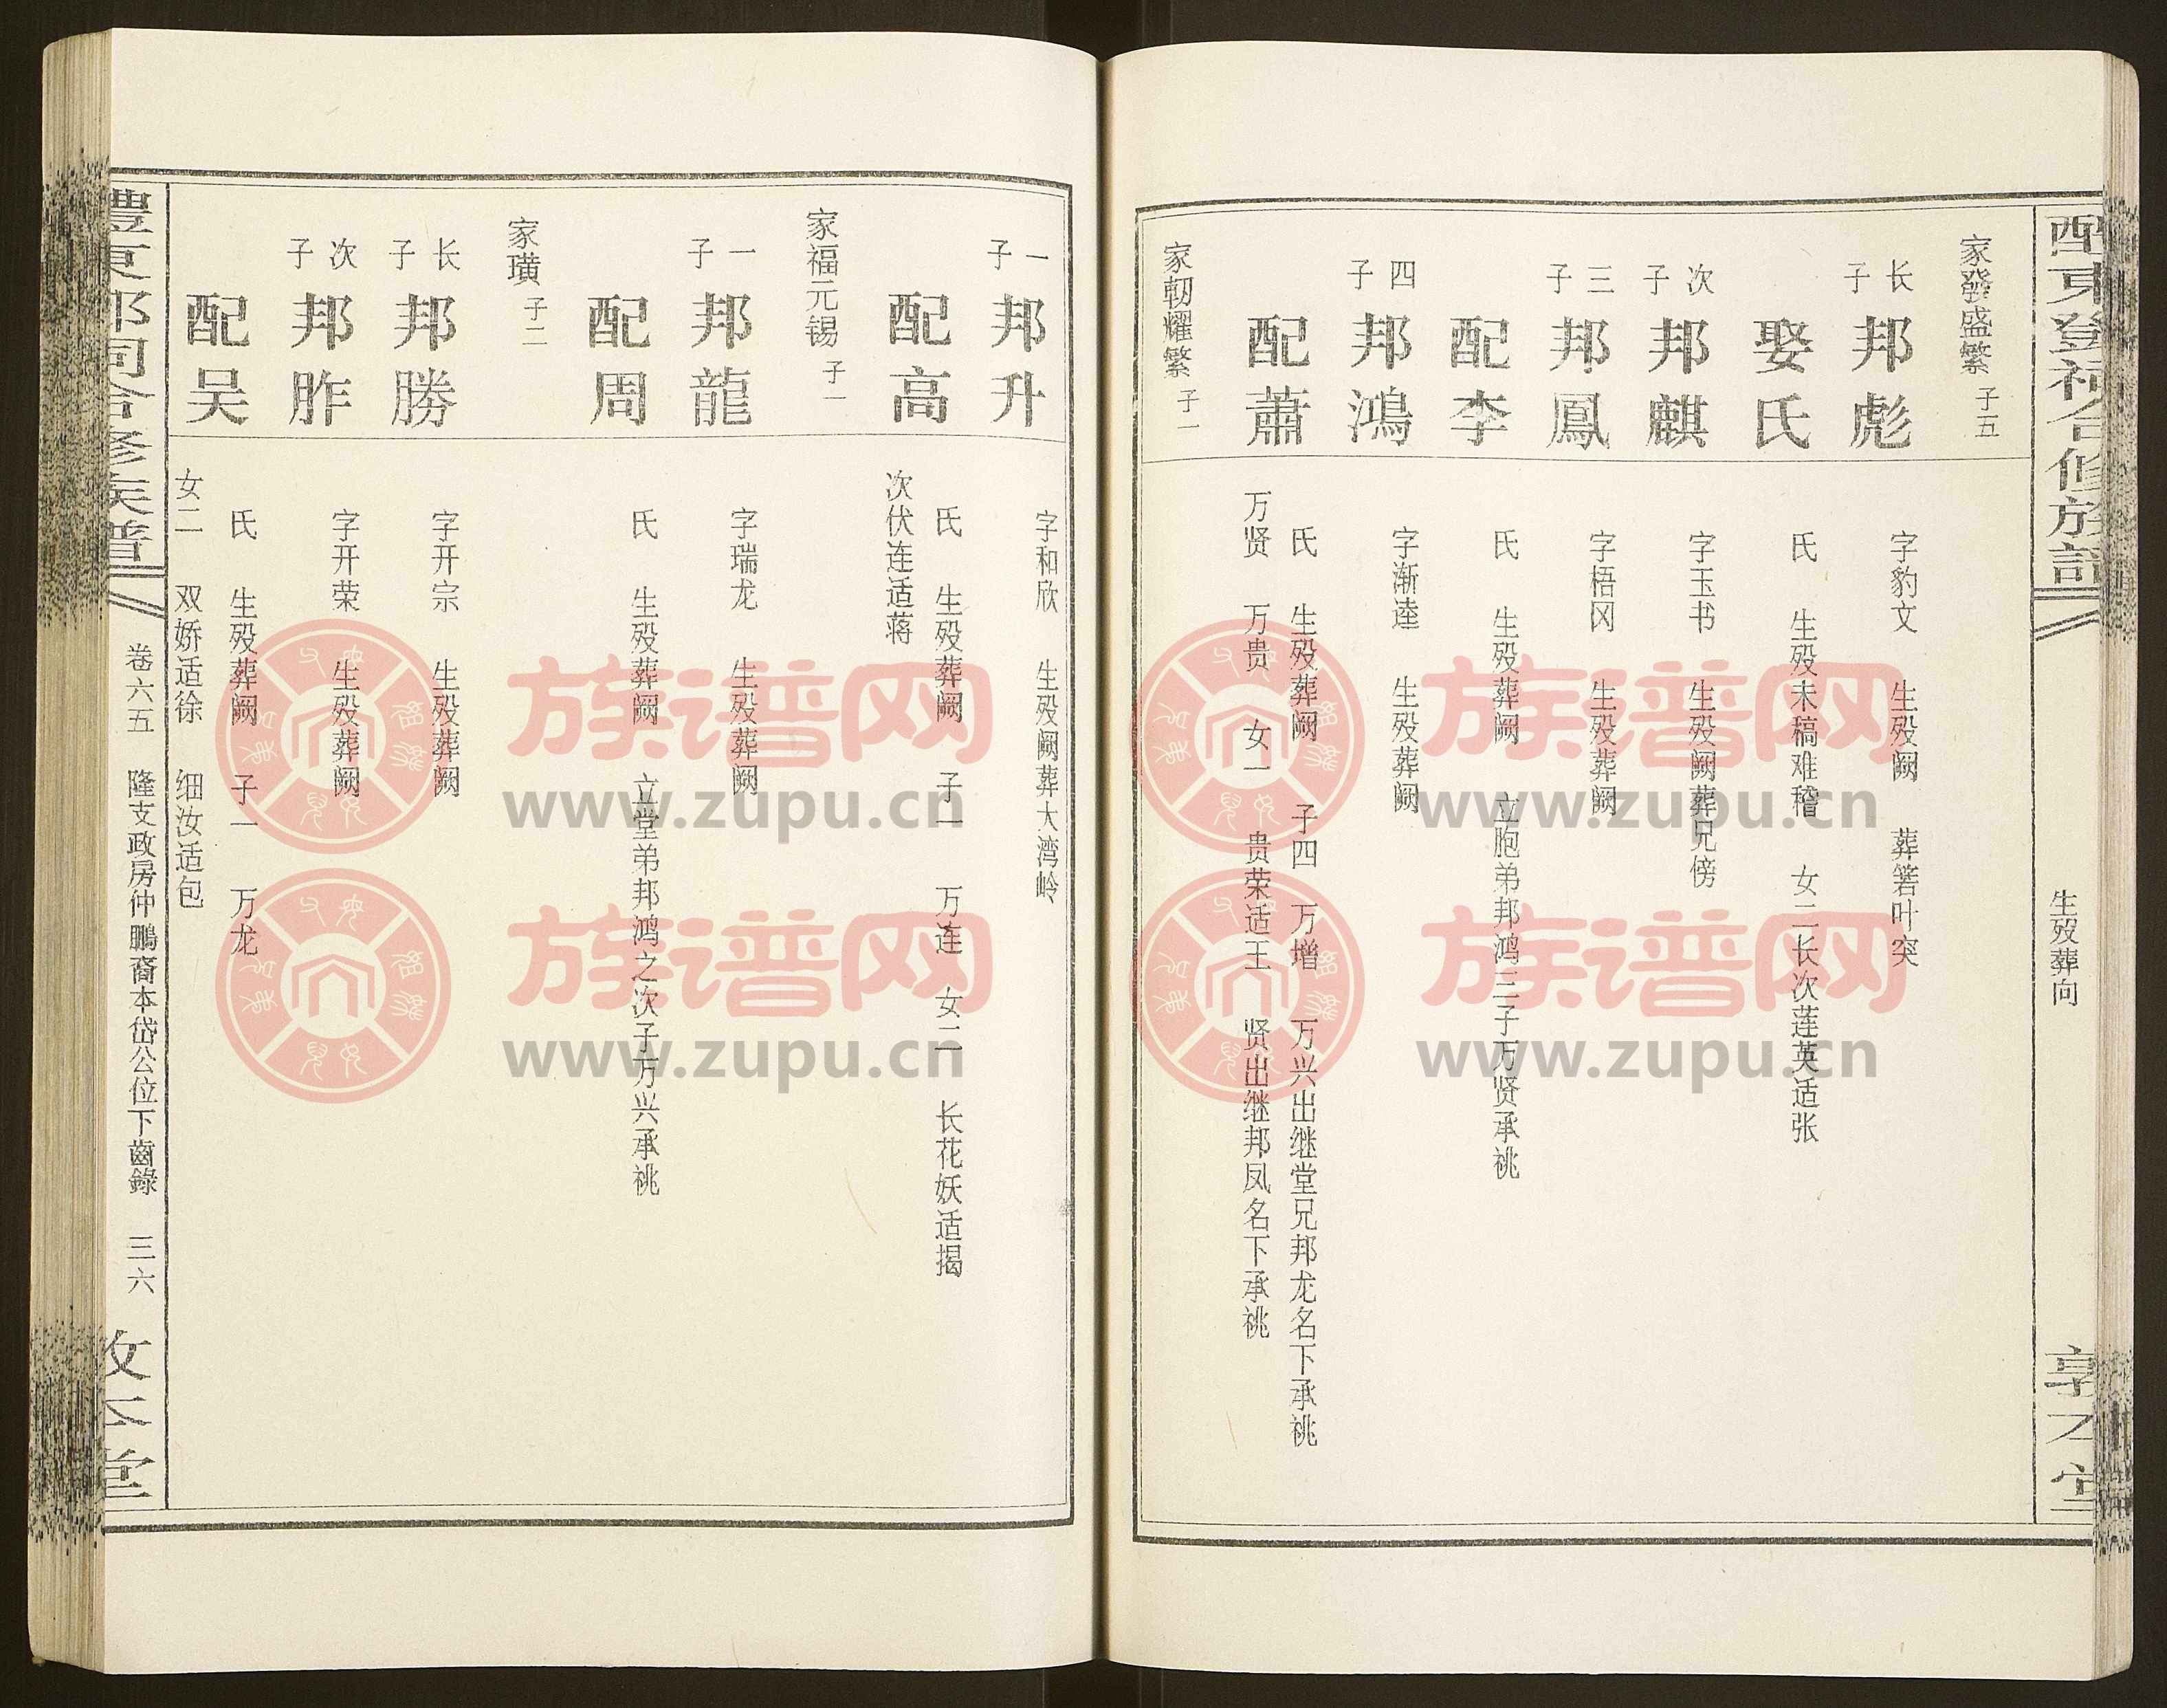 生殁葬向
家發盛繁 子五
长子 邦彪 字豹文 生殁阙 葬箬叶突
娶氏 氏 生殁未稿难稽 女二长次莲英适张
次子 邦麒 字玉书 生殁阙葬兄傍
三子 邦鳳 字梧冈 生殁葬阙
配李 氏 生殁葬阙 立胞弟邦鸿三子万贤承祧
四子 邦鴻 字渐逵 生殁葬阙
配蕭 氏 生殁葬阙 子四 万增 万兴出继堂兄邦龙名下承祧
万贤 万贵 女一 贵荣适王 贤出继邦凤名下承祧
家勑耀繁 子一
一子 邦升 字和欣 生殁阙葬大湾岭
配高 氏 生殁葬阙 子一 万连 女二 长花妖适揭
次伏连适蒋
家福元锡 子一
一子 邦龍 字瑞龙 生殁葬阙
配周 氏 生殁葬阙 立堂弟邦鸿之次子万兴承祧
家璜 子二
长子 邦勝 字开宗 生殁葬阙
次子 邦胙 字开荣 生殁葬阙
配吴 氏 生殁葬阙 子一 万龙
女二 双娇适徐 细汝适包
卷六五 隆支政房仲鵬裔本岱公位下齒錄 三六
族谱网
www.zupu.cn
族谱网
www.zupu.cn
族谱网
www.zupu.cn
族谱网
www.zupu.cn